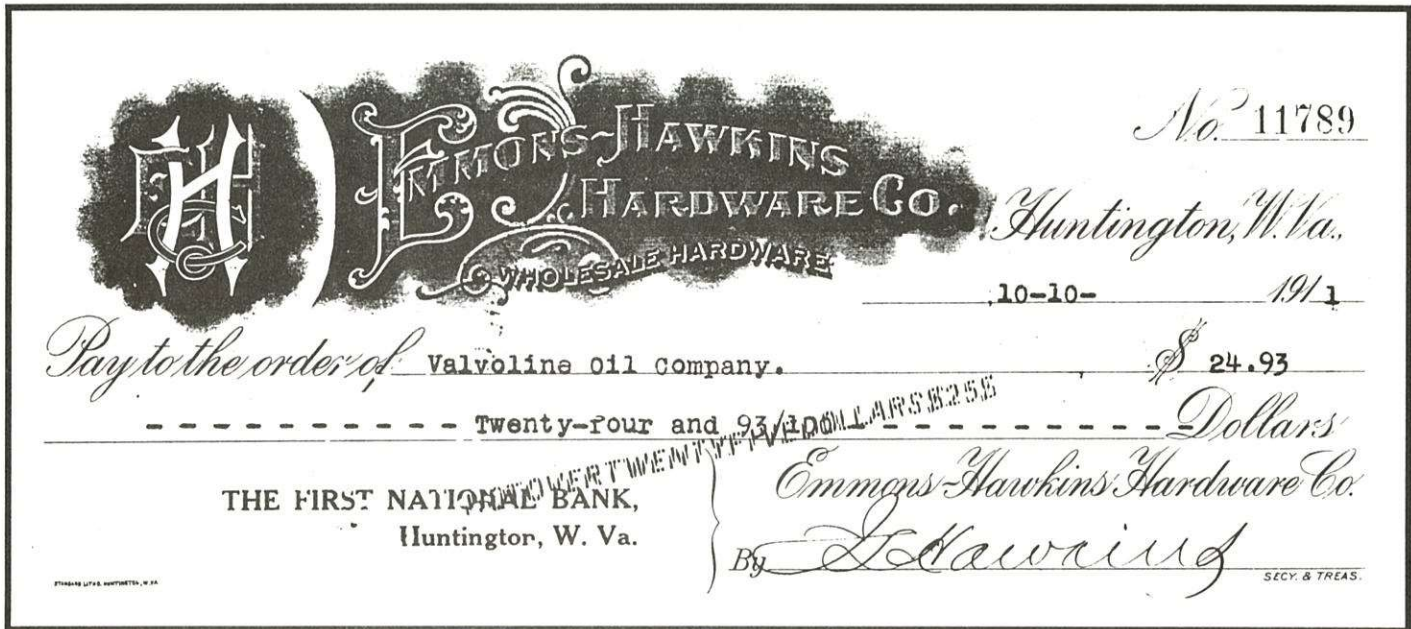 EHHC
No. 11789
EMMONS-HAWKINS
HARDWARE CO.
WHOLESALE HARDWARE
Huntington, W. Va.,
10-10- 1911
Pay to the order of Valvoline Oil Company. $ 24.93
- - - - - - - - - - - - Twenty-four and 93/100 - - - - - - - - - - - - Dollars
NOT OVER TWENTY FIVE DOLLARS $25$
THE FIRST NATIONAL BANK,
Huntington, W. Va.
Emmons-Hawkins Hardware Co.
By Hawkins
SECY. & TREAS.
STANDARD LITHO. HUNTINGTON, W. VA